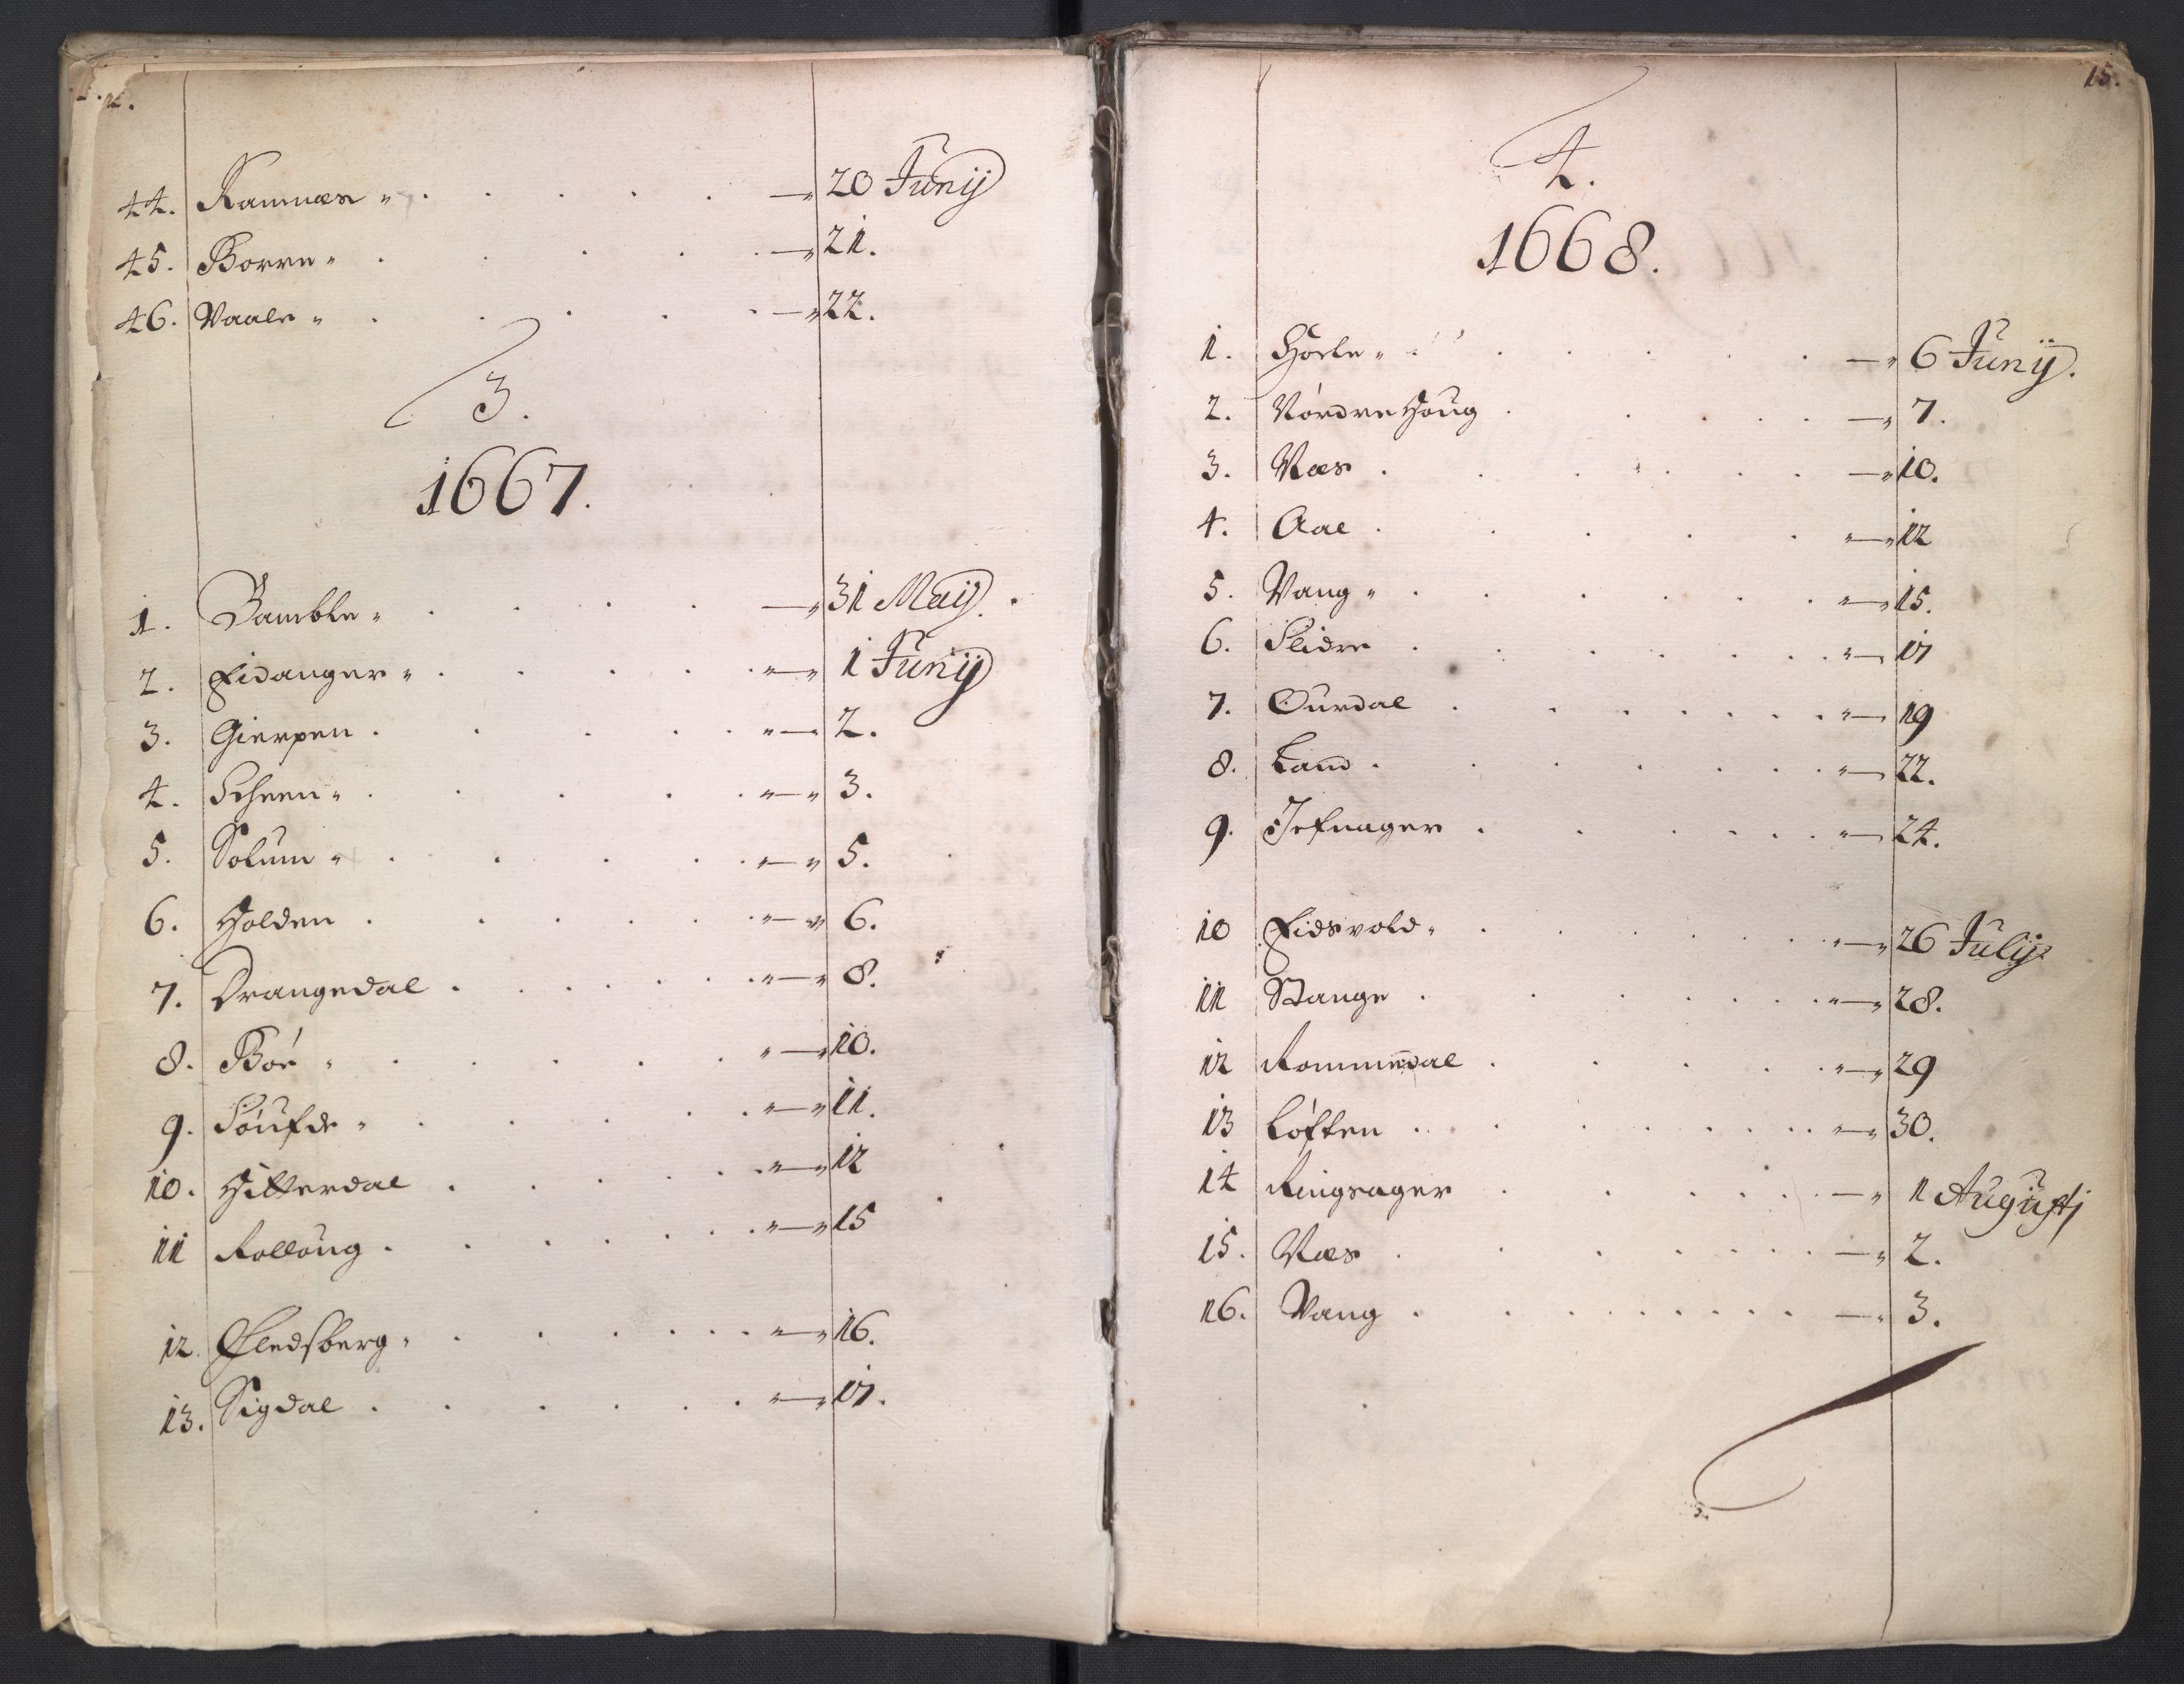 44. Ramnæs 20 Junij
45. Borre 21.
46. Vaale 22.
3.
1667.
1. Bamble 31 Maij.
2. Eidanger 1 Junij
3. Gierpen 2.
4. Scheen 3.
5. Solum 5.
6. Holden 6.
7. Drangedal 8.
8. Bóe 10.
9. Sóufde 11.
10. Hitterdal 12
11 Rolloug 15
12. Fledsberg 16.
13. Sigdal 17.
15.
4.
1668.
1. Hole 6 Junij.
2. Nórdrehoug 7.
3. Næs 10.
4. Aal 12
5. Vang 15.
6. Slidre 17
7. Ourdal 19
8. Land 22.
9. Jefnager 24.
10 Eidsvold 26 Julij
11 Stange 28.
12 Rommedal 29
13 Lóften 30.
14 Ringsager 1 Augustj
15. Næs 2.
16. Vang 3.